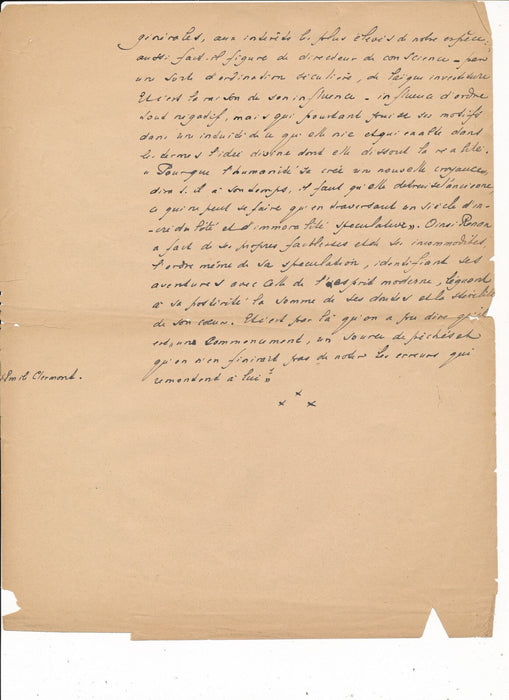 générales, aux intérêts les plus élevés de notre espèce,
aussi fait-il figure de directeur de conscience - par
une sorte d'ordination séculière, de laïque investiture
Et c'est la raison de son influence - influence d'ordre
tout négatif, mais qui pourtant puise ses motifs
dans un induit de ce qu'elle nie et qui enable dans
les termes l'idée divine dont elle dissout la réalité.
« Pour que l'humanité se crée une nouvelle croyance,
dira-t-il à son temps, il faut qu'elle détruise l'ancienne
ce qui ne peut se faire qu'en traversant un siècle d'in-
crédulité et d'immoralité spéculative ». Ainsi Renan
a fait de ses propres faiblesses et de ses incommodités,
l'ordre même de sa spéculation, identifiant ses
aventures avec celle de l'esprit moderne, léguant
à sa postérité la somme de ses doutes et la stérilité
de son cœur. Et c'est par là qu'on a pu dire qu'il
est « un commencement, un source de péchés et
qu'on n'en finirait pas de noter les erreurs qui
Emile Clermont. remontent à lui » 1
x x x